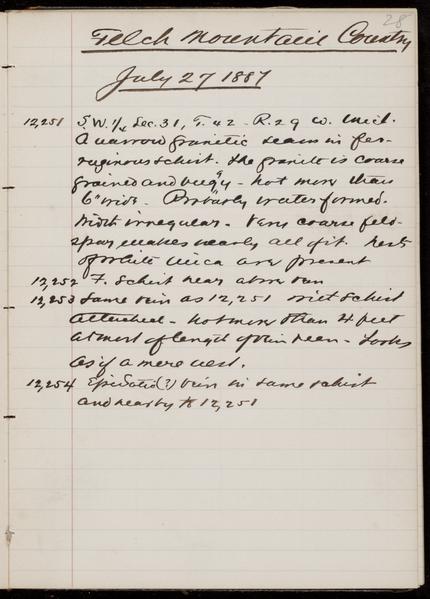 28
Felch Mountain Country
July 27 1887
12,251 S.W. 1/4 Sec. 31, T. 42 - R. 29 W. Mich.
A narrow granitic seam in fer-
ruginous schist. The granite is coarse
grained and vuggy - not more than
6" wide. Probably water formed.
Width irregular. Very coarse feld-
spar makes nearly all of it. Nests
of white mica are present
12,252 F. Schist near above vein
12,253 Same vein as 12,251 with schist
attached - not more than 4 feet
at most of length of vein seen - Looks
as if a mere nest.
12,254 Epidote (?) vein in same schist
and nearby to 12,251